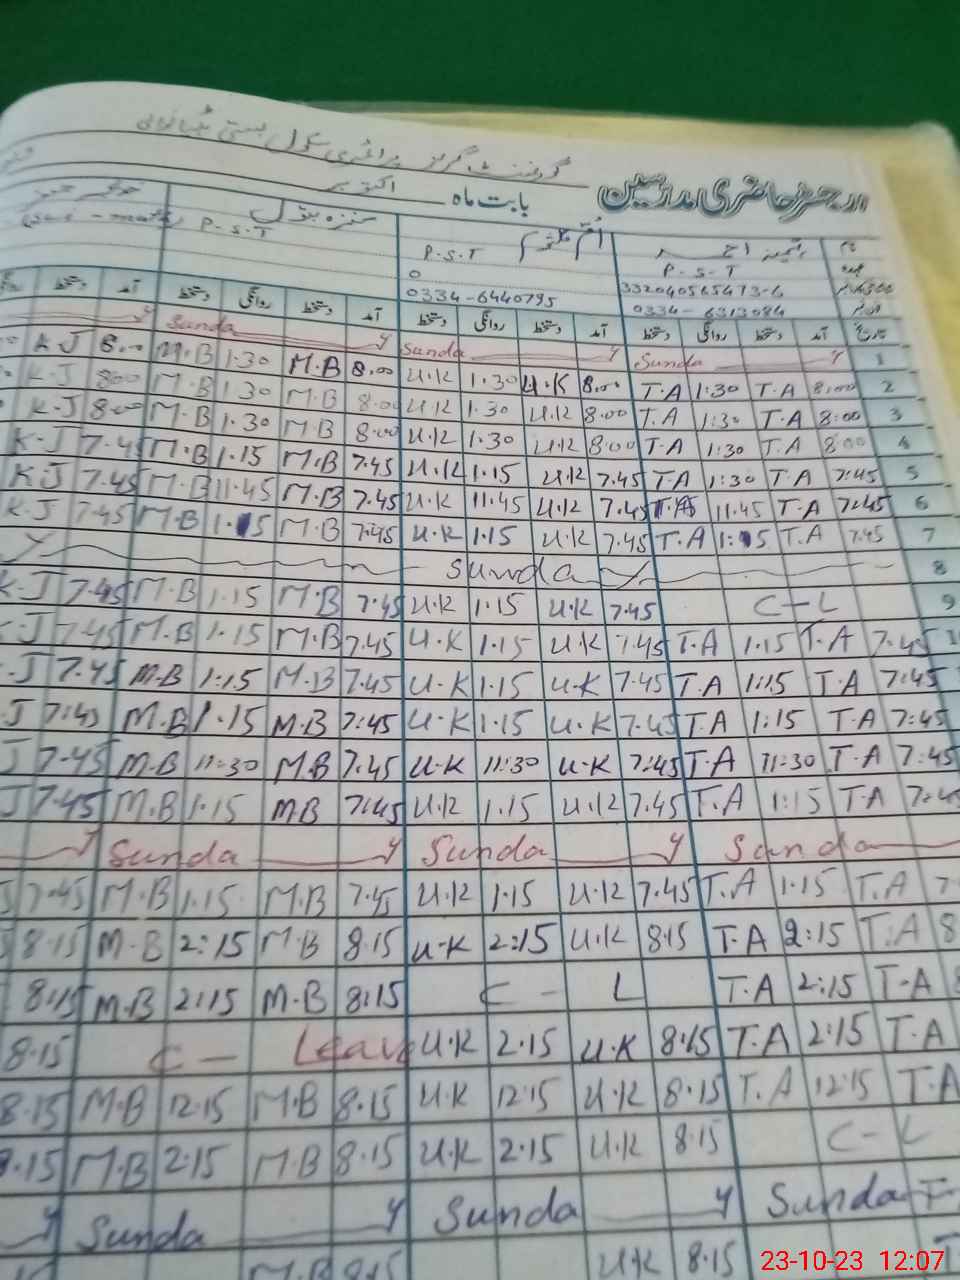 گورنمنٹ گرلز پرائمری سکول بستی
رجسٹر حاضری مدرسین بابت ماہ اکتوبر
نام اُم کلثوم
عہدہ P.S.T P.S.T P.S.T
332040565473-6 0
0334-6313084 0334-6440795
تاریخ آمد دستخط روانگی دستخط آمد دستخط روانگی دستخط آمد دستخط روانگی دستخط آمد دستخط
1 Sunda y Sunda y Sunda y
K.J 8.00 M.B 1.30 M.B 8.00 U.K 1.30 U.K 8.00 T.A 1:30 T.A 8:00 2
K.J 8.00 M.B 1.30 M.B 8.00 U.K 1.30 U.K 8.00 T.A 1:30 T.A 8:00 3
K.J 8.00 M.B 1.30 M.B 8.00 U.K 1.30 U.K 8.00 T.A 1:30 T.A 8:00 4
K.J 7.45 M.B 1.15 M.B 7.45 U.K 1.15 U.K 7.45 T.A 1:30 T.A 7:45 5
K.J 7.45 M.B 11.45 M.B 7.45 U.K 11.45 U.K 7.45 T.A 11.45 T.A 7:45 6
K.J 7.45 M.B 1.15 M.B 7.45 U.K 1.15 U.K 7.45 T.A 1:15 T.A 7.45 7
y Sunda y 8
K.J 7.45 M.B 1.15 M.B 7.45 U.K 1.15 U.K 7.45 C-L 9
J 7.45 M.B 1.15 M.B 7.45 U.K 1.15 U.K 7.45 T.A 1.15 T.A 7.45
J 7.45 M.B 1:15 M.B 7.45 U.K 1.15 U.K 7.45 T.A 1:15 T.A 7:45
J 7:45 M.B 1.15 M.B 7:45 U.K 1.15 U.K 7.45 T.A 1:15 T.A 7:45
J 7.45 M.B 11:30 M.B 7.45 U.K 11:30 U.K 7:45 T.A 11:30 T.A 7:45
J 7.45 M.B 1.15 M.B 7:45 U.K 1.15 U.K 7.45 T.A 1:15 T.A 7:45
y Sunda y Sunda y Sunda
J 7.45 M.B 1.15 M.B 7.45 U.K 1.15 U.K 7.45 T.A 1.15 T.A 7
8.15 M.B 2:15 M.B 8.15 U.K 2:15 U.K 8.15 T.A 2:15 T.A 8
8:15 M.B 2:15 M.B 8:15 C-L T.A 2:15 T.A 8
8.15 C- Leave U.K 2.15 U.K 8.15 T.A 2:15 T.A
8.15 M.B 12.15 M.B 8.15 U.K 12.15 U.K 8.15 T.A 12:15 T.A
8.15 M.B 2.15 M.B 8.15 U.K 2.15 U.K 8.15 C-L
y Sunda y Sunda y Sunda T
M.B 8.15 U.K 8.15
23-10-23 12:07